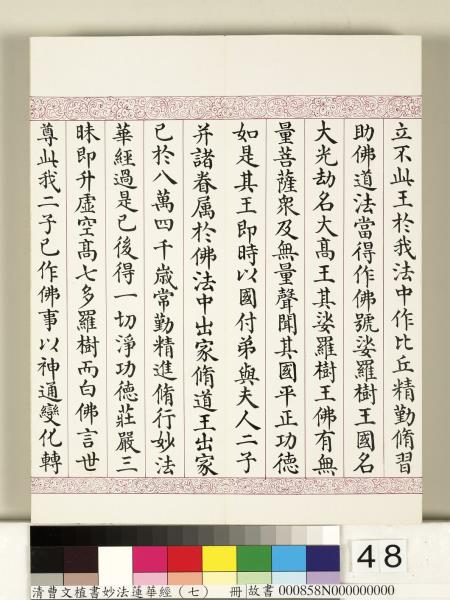 立不此王於我法中作比丘精勤脩習
助佛道法當得作佛號娑羅樹王國名
大光劫名大髙王其娑羅樹王佛有無
量菩薩衆及無量聲聞其國平正功德
如是其王即時以國付弟與夫人二子
并諸眷属於佛法中出家脩道王出家
已於八萬四千歲常勤精進脩行妙法
華經過是已後得一切淨功德莊嚴三
昧即升虛空髙七多羅樹而白佛言世
尊此我二子已作佛事以神通變化轉
48
清曹文植書妙法蓮華經（七） 冊 故書 000858N000000000